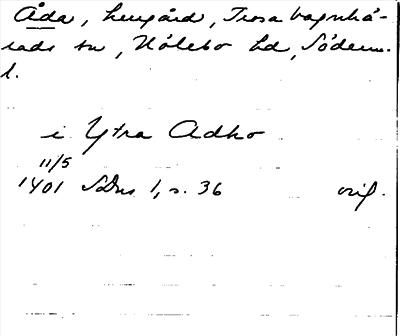 Åda, herrgård, Trosa-Vagnhä-
rads sn, Hölebo hd, Söderm.
l.
i Ytra Adho
11/5
1401 SDns 1, s. 36 orig.